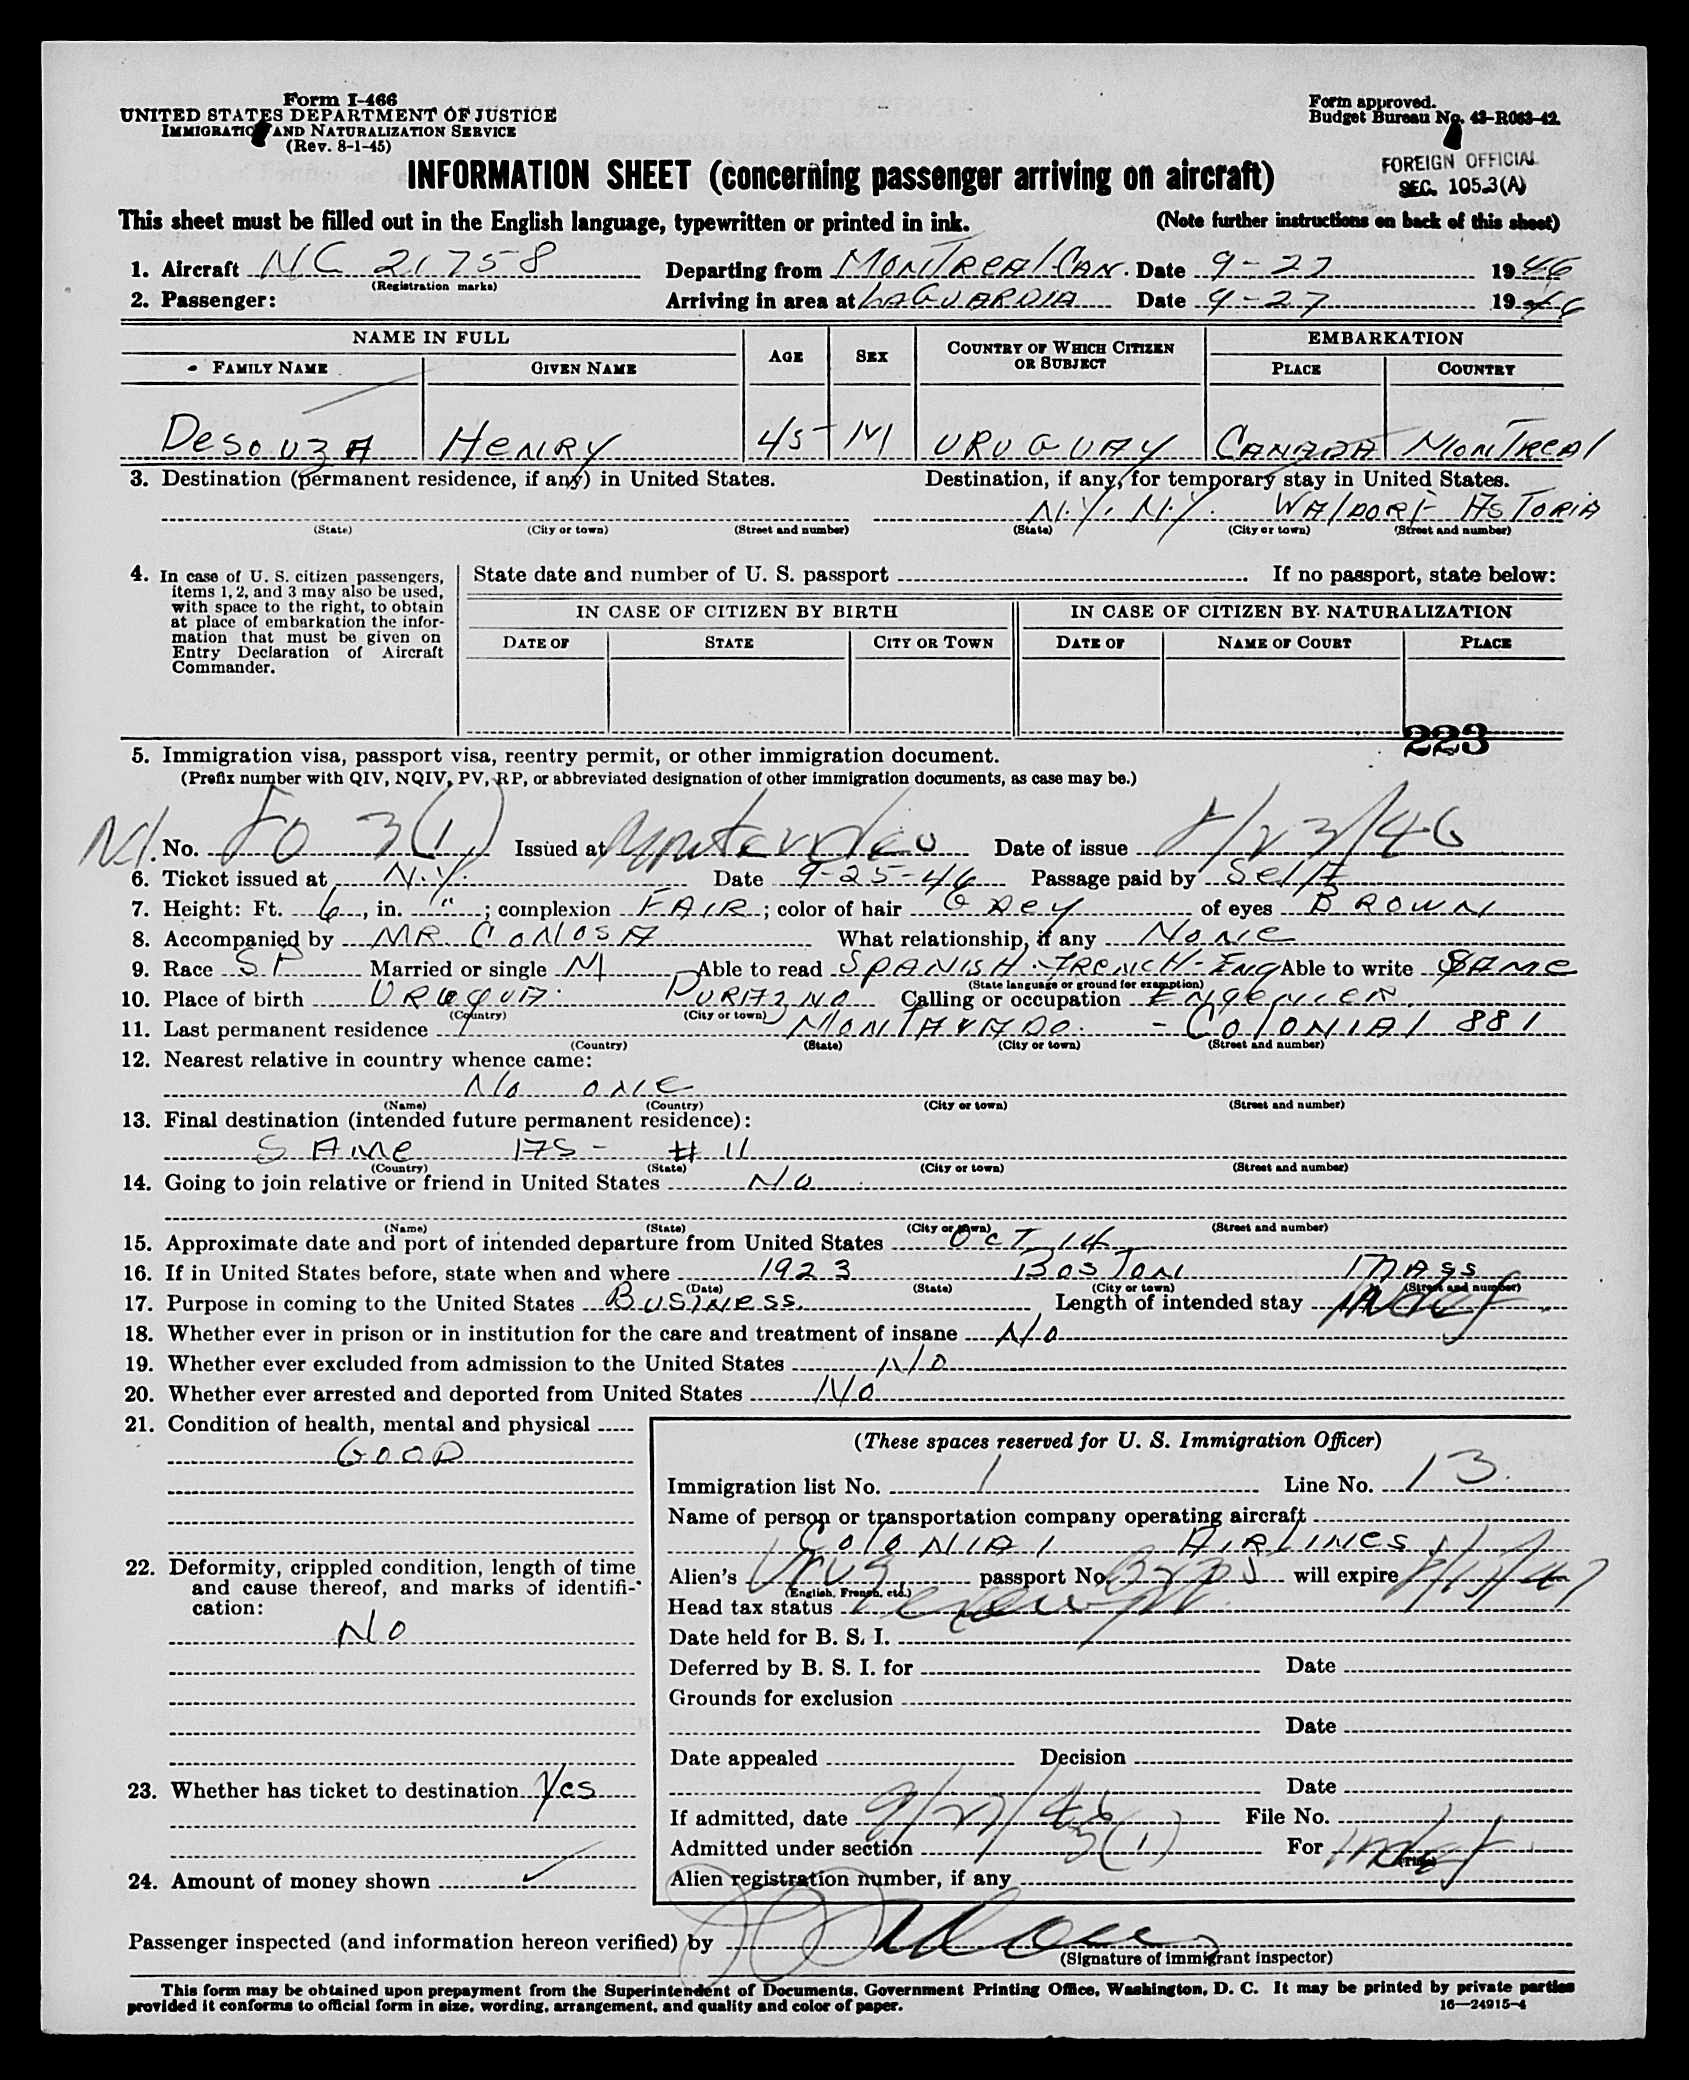 Form I-466
UNITED STATES DEPARTMENT OF JUSTICE
IMMIGRATION AND NATURALIZATION SERVICE
(Rev. 8-1-45)
Form approved.
Budget Bureau No. 43-R063-42.
INFORMATION SHEET (concerning passenger arriving on aircraft)
FOREIGN OFFICIAL
SEC. 105.3(A)
This sheet must be filled out in the English language, typewritten or printed in ink. (Note further instructions on back of this sheet)
1. Aircraft NC 21758 Departing from MONTREAL CAN. Date 9-27 1946
(Registration marks)
2. Passenger: Arriving in area at LAGUARDIA Date 9-27 1946
NAME IN FULL AGE SEX COUNTRY OF WHICH CITIZEN OR SUBJECT EMBARKATION
FAMILY NAME GIVEN NAME PLACE COUNTRY
DeSOUZA HENRY 45 M URUGUAY CANADA MONTREAL
3. Destination (permanent residence, if any) in United States. Destination, if any, for temporary stay in United States.
N.Y. N.Y. WALDORF ASTORIA
(State) (City or town) (Street and number) (State) (City or town) (Street and number)
4. In case of U. S. citizen passengers, items 1, 2, and 3 may also be used, with space to the right, to obtain at place of embarkation the information that must be given on Entry Declaration of Aircraft Commander.
State date and number of U. S. passport If no passport, state below:
IN CASE OF CITIZEN BY BIRTH IN CASE OF CITIZEN BY NATURALIZATION
DATE OF STATE CITY OR TOWN DATE OF NAME OF COURT PLACE
223
5. Immigration visa, passport visa, reentry permit, or other immigration document.
(Prefix number with QIV, NQIV, PV, RP, or abbreviated designation of other immigration documents, as case may be.)
No. FO 3(1) Issued at Montevideo Date of issue 8/23/46
6. Ticket issued at N.Y. Date 9-25-46 Passage paid by Self
7. Height: Ft. 6, in. "; complexion FAIR; color of hair GREY of eyes BROWN
8. Accompanied by MR. CONOSA What relationship, if any NONE
9. Race SP Married or single M Able to read SPANISH-FRENCH-ENG Able to write SAME
(State language or ground for exemption)
10. Place of birth URUGUA. DURAZNO Calling or occupation ENGENIER
(Country) (City or town)
11. Last permanent residence MONTAVADO. - COLONIAL 881
(Country) (State) (City or town) (Street and number)
12. Nearest relative in country whence came:
NO ONE
(Name) (Country) (City or town) (Street and number)
13. Final destination (intended future permanent residence):
SAME AS - # 11
(Country) (State) (City or town) (Street and number)
14. Going to join relative or friend in United States NO
(Name) (State) (City or town) (Street and number)
15. Approximate date and port of intended departure from United States OCT 14
16. If in United States before, state when and where 1923 BOSTON MASS
(Date) (State) (City or town) (Street and number)
17. Purpose in coming to the United States BUSINESS. Length of intended stay Indef.
18. Whether ever in prison or in institution for the care and treatment of insane NO
19. Whether ever excluded from admission to the United States NO
20. Whether ever arrested and deported from United States NO
21. Condition of health, mental and physical
GOOD
22. Deformity, crippled condition, length of time and cause thereof, and marks of identification:
NO
23. Whether has ticket to destination Yes
24. Amount of money shown ✓
(These spaces reserved for U. S. Immigration Officer)
Immigration list No. 1 Line No. 13.
Name of person or transportation company operating aircraft
COLONIAL AIRLINES
Alien's Urug passport No. will expire
(English, French, etc.)
Head tax status exempt
Date held for B. S. I.
Deferred by B. S. I. for Date
Grounds for exclusion
Date
Date appealed Decision
Date
If admitted, date 9/27/46 File No.
Admitted under section 3(1) For Indef.
(Time)
Alien registration number, if any
Passenger inspected (and information hereon verified) by
(Signature of immigrant inspector)
This form may be obtained upon prepayment from the Superintendent of Documents, Government Printing Office, Washington, D. C. It may be printed by private parties
provided it conforms to official form in size, wording, arrangement, and quality and color of paper.
16—24915-4